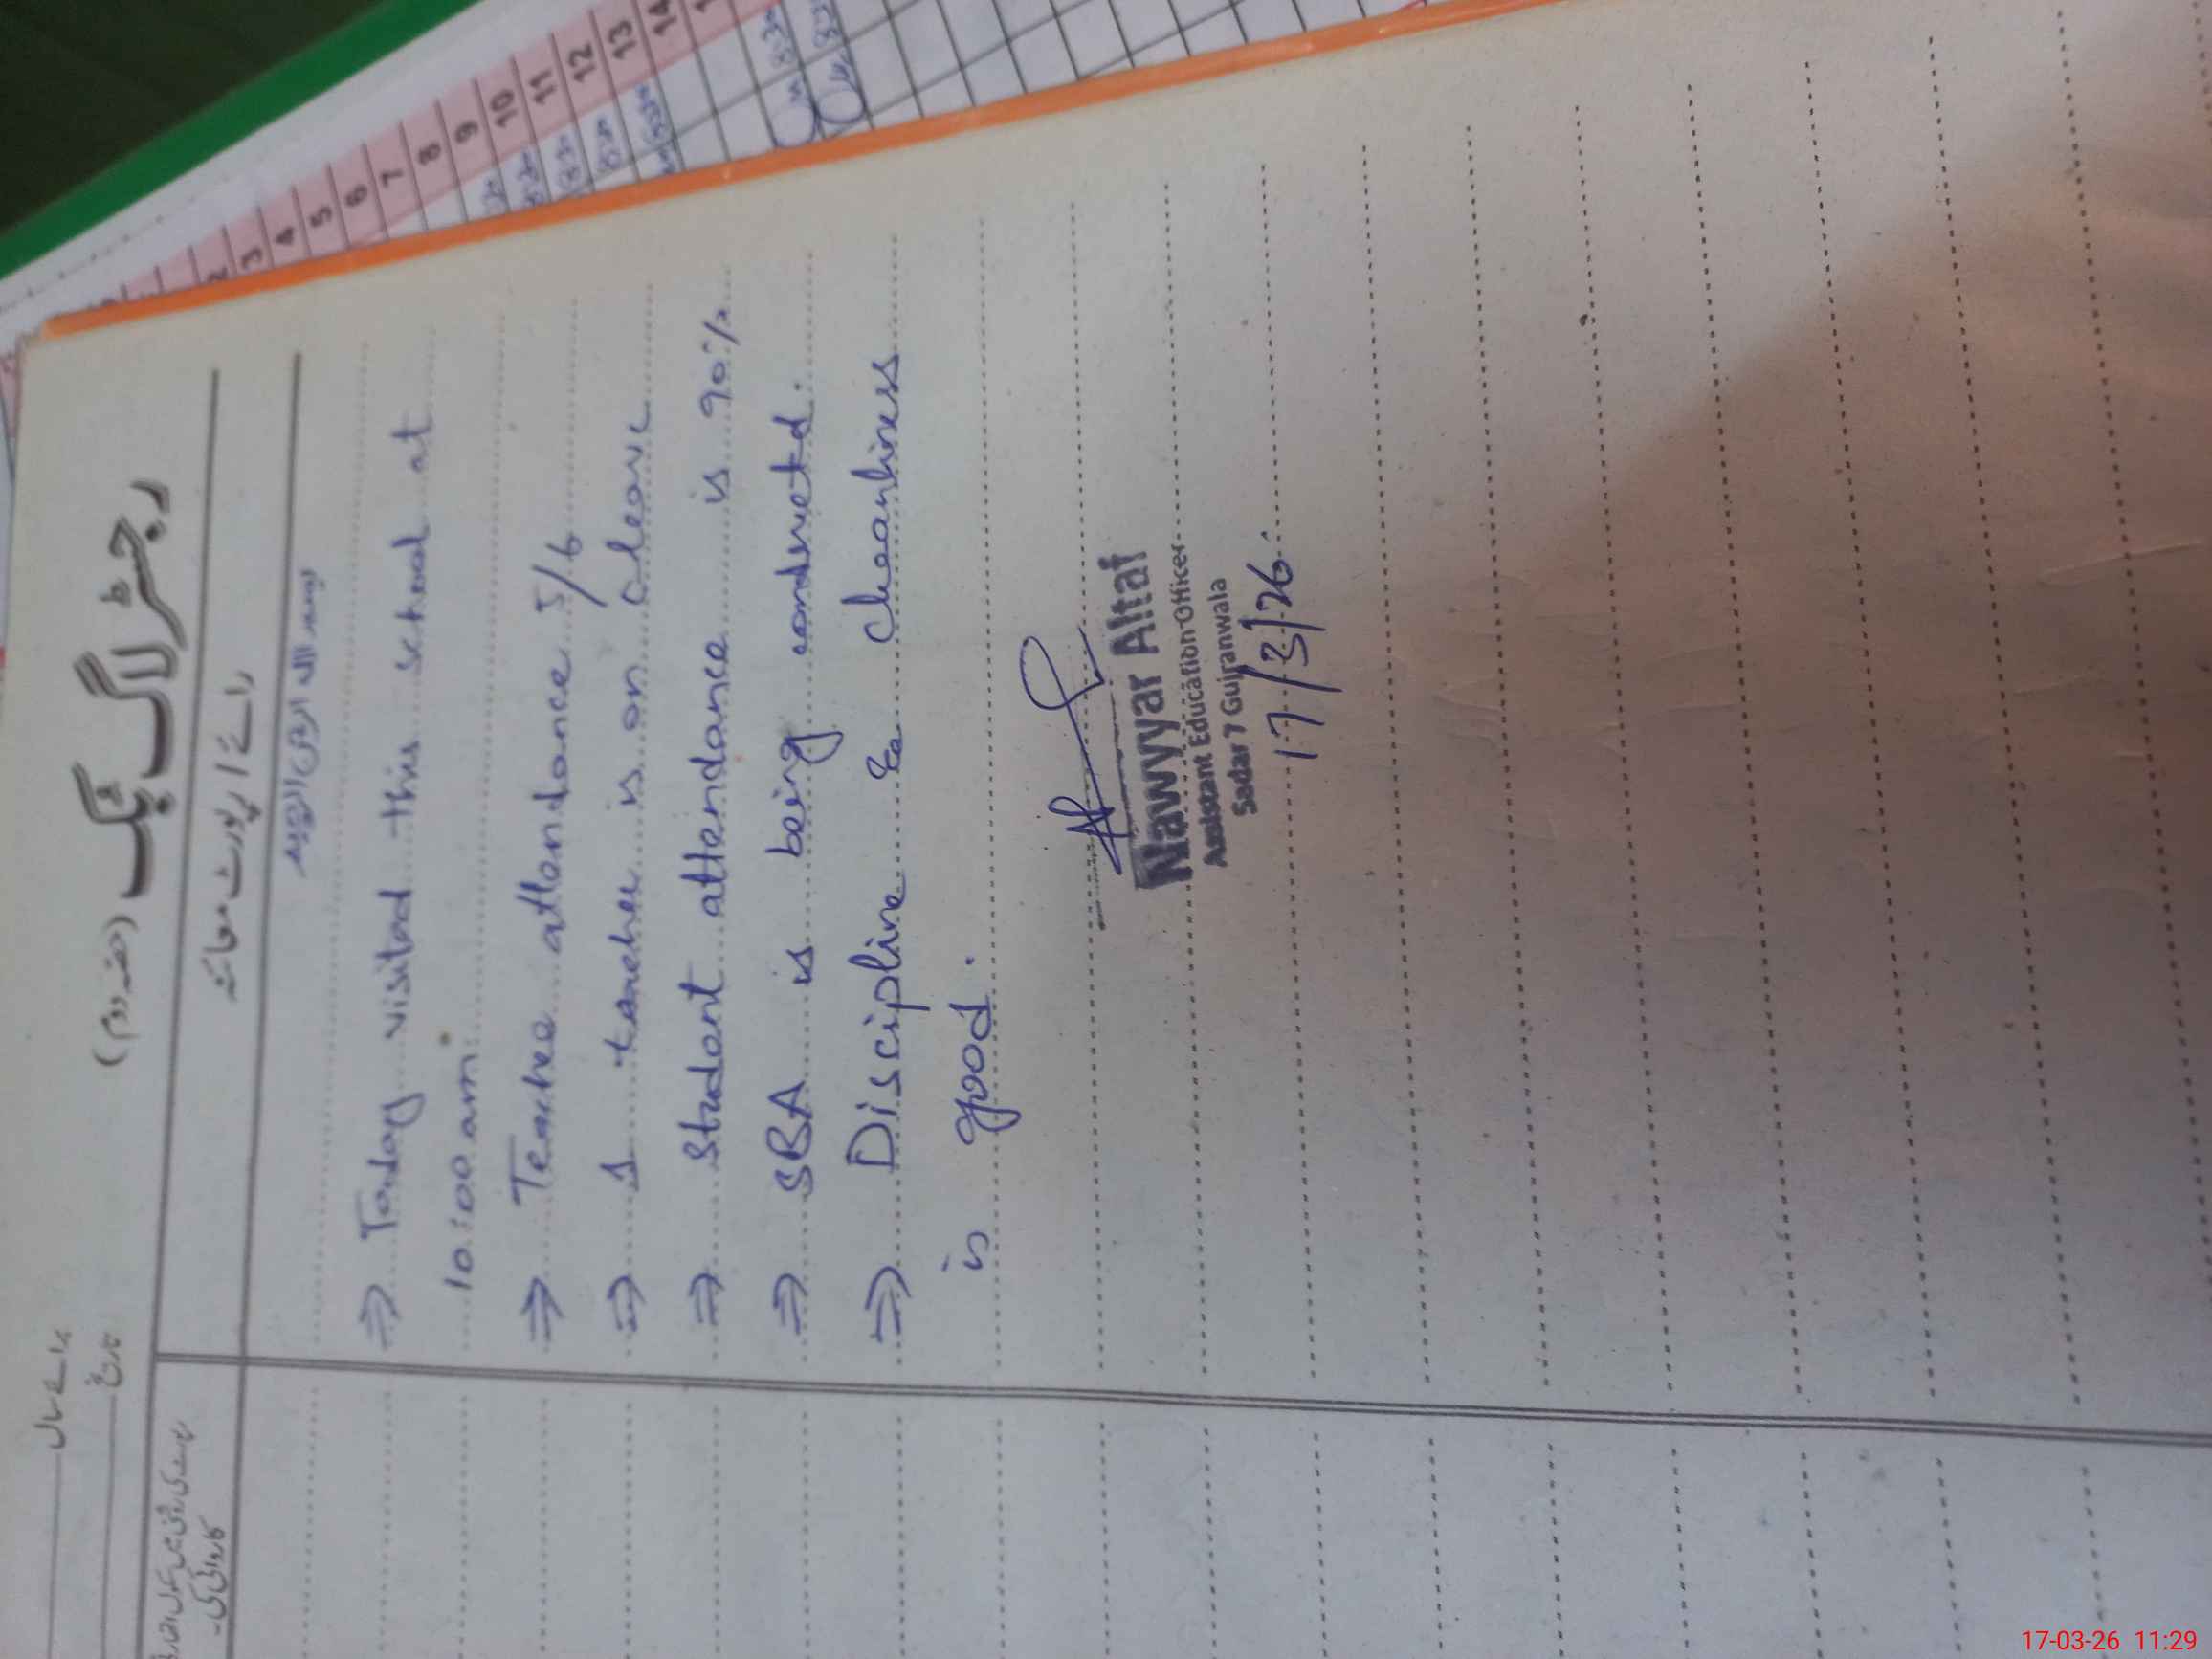 رجسٹر لاگ بک (حصہ دوم)
برائے سال
تاریخ
رائے / رپورٹ معائنہ
کاروائی کی۔
بسم اللہ الرحمن الرحیم
⇒ Today visited this school at
10:00 am.
⇒ Teacher attendance 5/6
⇒ 1 teacher is on c/leave
⇒ Student attendance is 90%
⇒ SBA is being conducted.
⇒ Discipline & cleanliness
is good.
Nawyyar Altaf
Assistant Education Officer
Sadar 7 Gujranwala
17/3/26
2
3
4
5
6
7
8
9
10
11
12
13
14
17-03-26 11:29